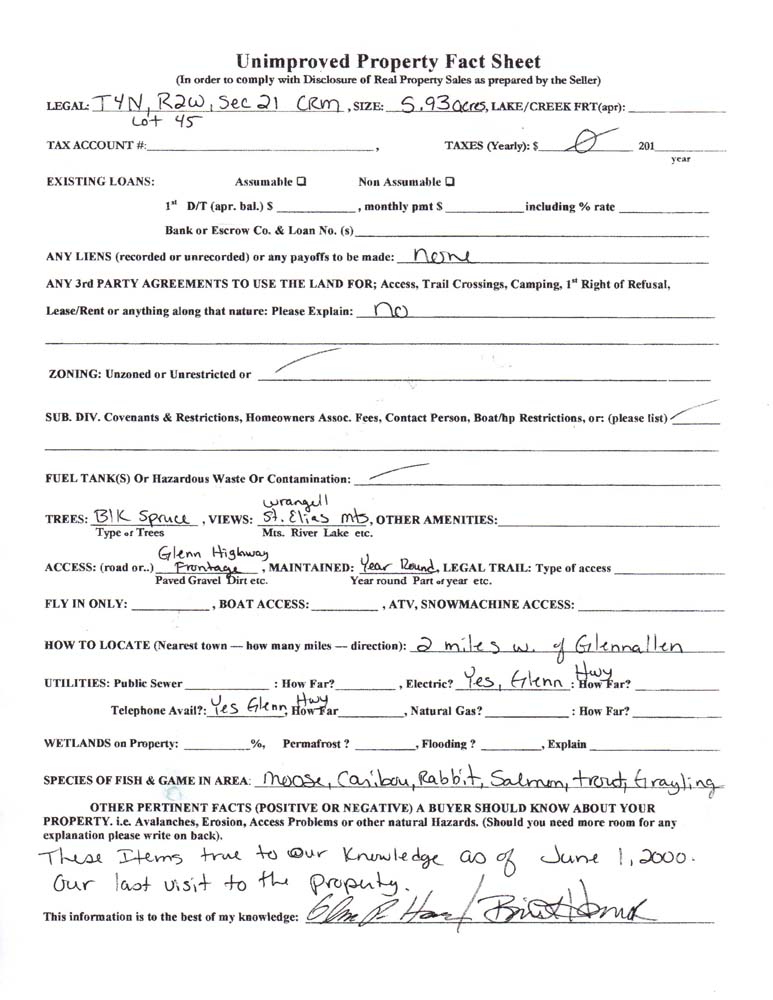 Unimproved Property Fact Sheet
(In order to comply with Disclosure of Real Property Sales as prepared by the Seller)
LEGAL: T4N, R2W, Sec 21 CRM, SIZE: 5.93 acres, LAKE/CREEK FRT(apr):
Lot 45
TAX ACCOUNT #: , TAXES (Yearly): $ 0 201
year
EXISTING LOANS: Assumable ☐ Non Assumable ☐
1st D/T (apr. bal.) $ , monthly pmt $ including % rate
Bank or Escrow Co. & Loan No. (s)
ANY LIENS (recorded or unrecorded) or any payoffs to be made: none
ANY 3rd PARTY AGREEMENTS TO USE THE LAND FOR; Access, Trail Crossings, Camping, 1st Right of Refusal,
Lease/Rent or anything along that nature: Please Explain: no
ZONING: Unzoned or Unrestricted or
SUB. DIV. Covenants & Restrictions, Homeowners Assoc. Fees, Contact Person, Boat/hp Restrictions, or: (please list)
FUEL TANK(S) Or Hazardous Waste Or Contamination:
wrangell
TREES: Blk Spruce, VIEWS: St. Elias mts, OTHER AMENITIES:
Type of Trees Mts. River Lake etc.
Glenn Highway
ACCESS: (road or..) Frontage, MAINTAINED: Year Round, LEGAL TRAIL: Type of access
Paved Gravel Dirt etc. Year round Part of year etc.
FLY IN ONLY: , BOAT ACCESS: , ATV, SNOWMACHINE ACCESS:
HOW TO LOCATE (Nearest town — how many miles — direction): 2 miles w. of Glennallen
UTILITIES: Public Sewer : How Far? , Electric? Yes, Glenn Hwy : How Far?
Telephone Avail?: Yes Glenn Hwy, How Far , Natural Gas? : How Far?
WETLANDS on Property: %, Permafrost ? , Flooding ? , Explain
SPECIES OF FISH & GAME IN AREA: Moose, Caribou, Rabbit, Salmon, trout, Grayling
OTHER PERTINENT FACTS (POSITIVE OR NEGATIVE) A BUYER SHOULD KNOW ABOUT YOUR
PROPERTY. i.e. Avalanches, Erosion, Access Problems or other natural Hazards. (Should you need more room for any
explanation please write on back).
These Items true to our Knowledge as of June 1, 2000.
Our last visit to the property.
This information is to the best of my knowledge: